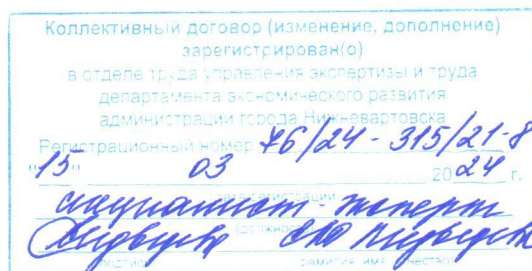 Коллективный договор (изменение, дополнение)
зарегистрирован(о)
в отделе труда управления экспертизы и труда
департамента экономического развития
администрации города Нижневартовска
Регистрационный номер 76/24 - 315/21-8
"15" 03 2024 г.
дата регистрации
специалист - эксперт
должность
подпись фамилия, имя, отчество